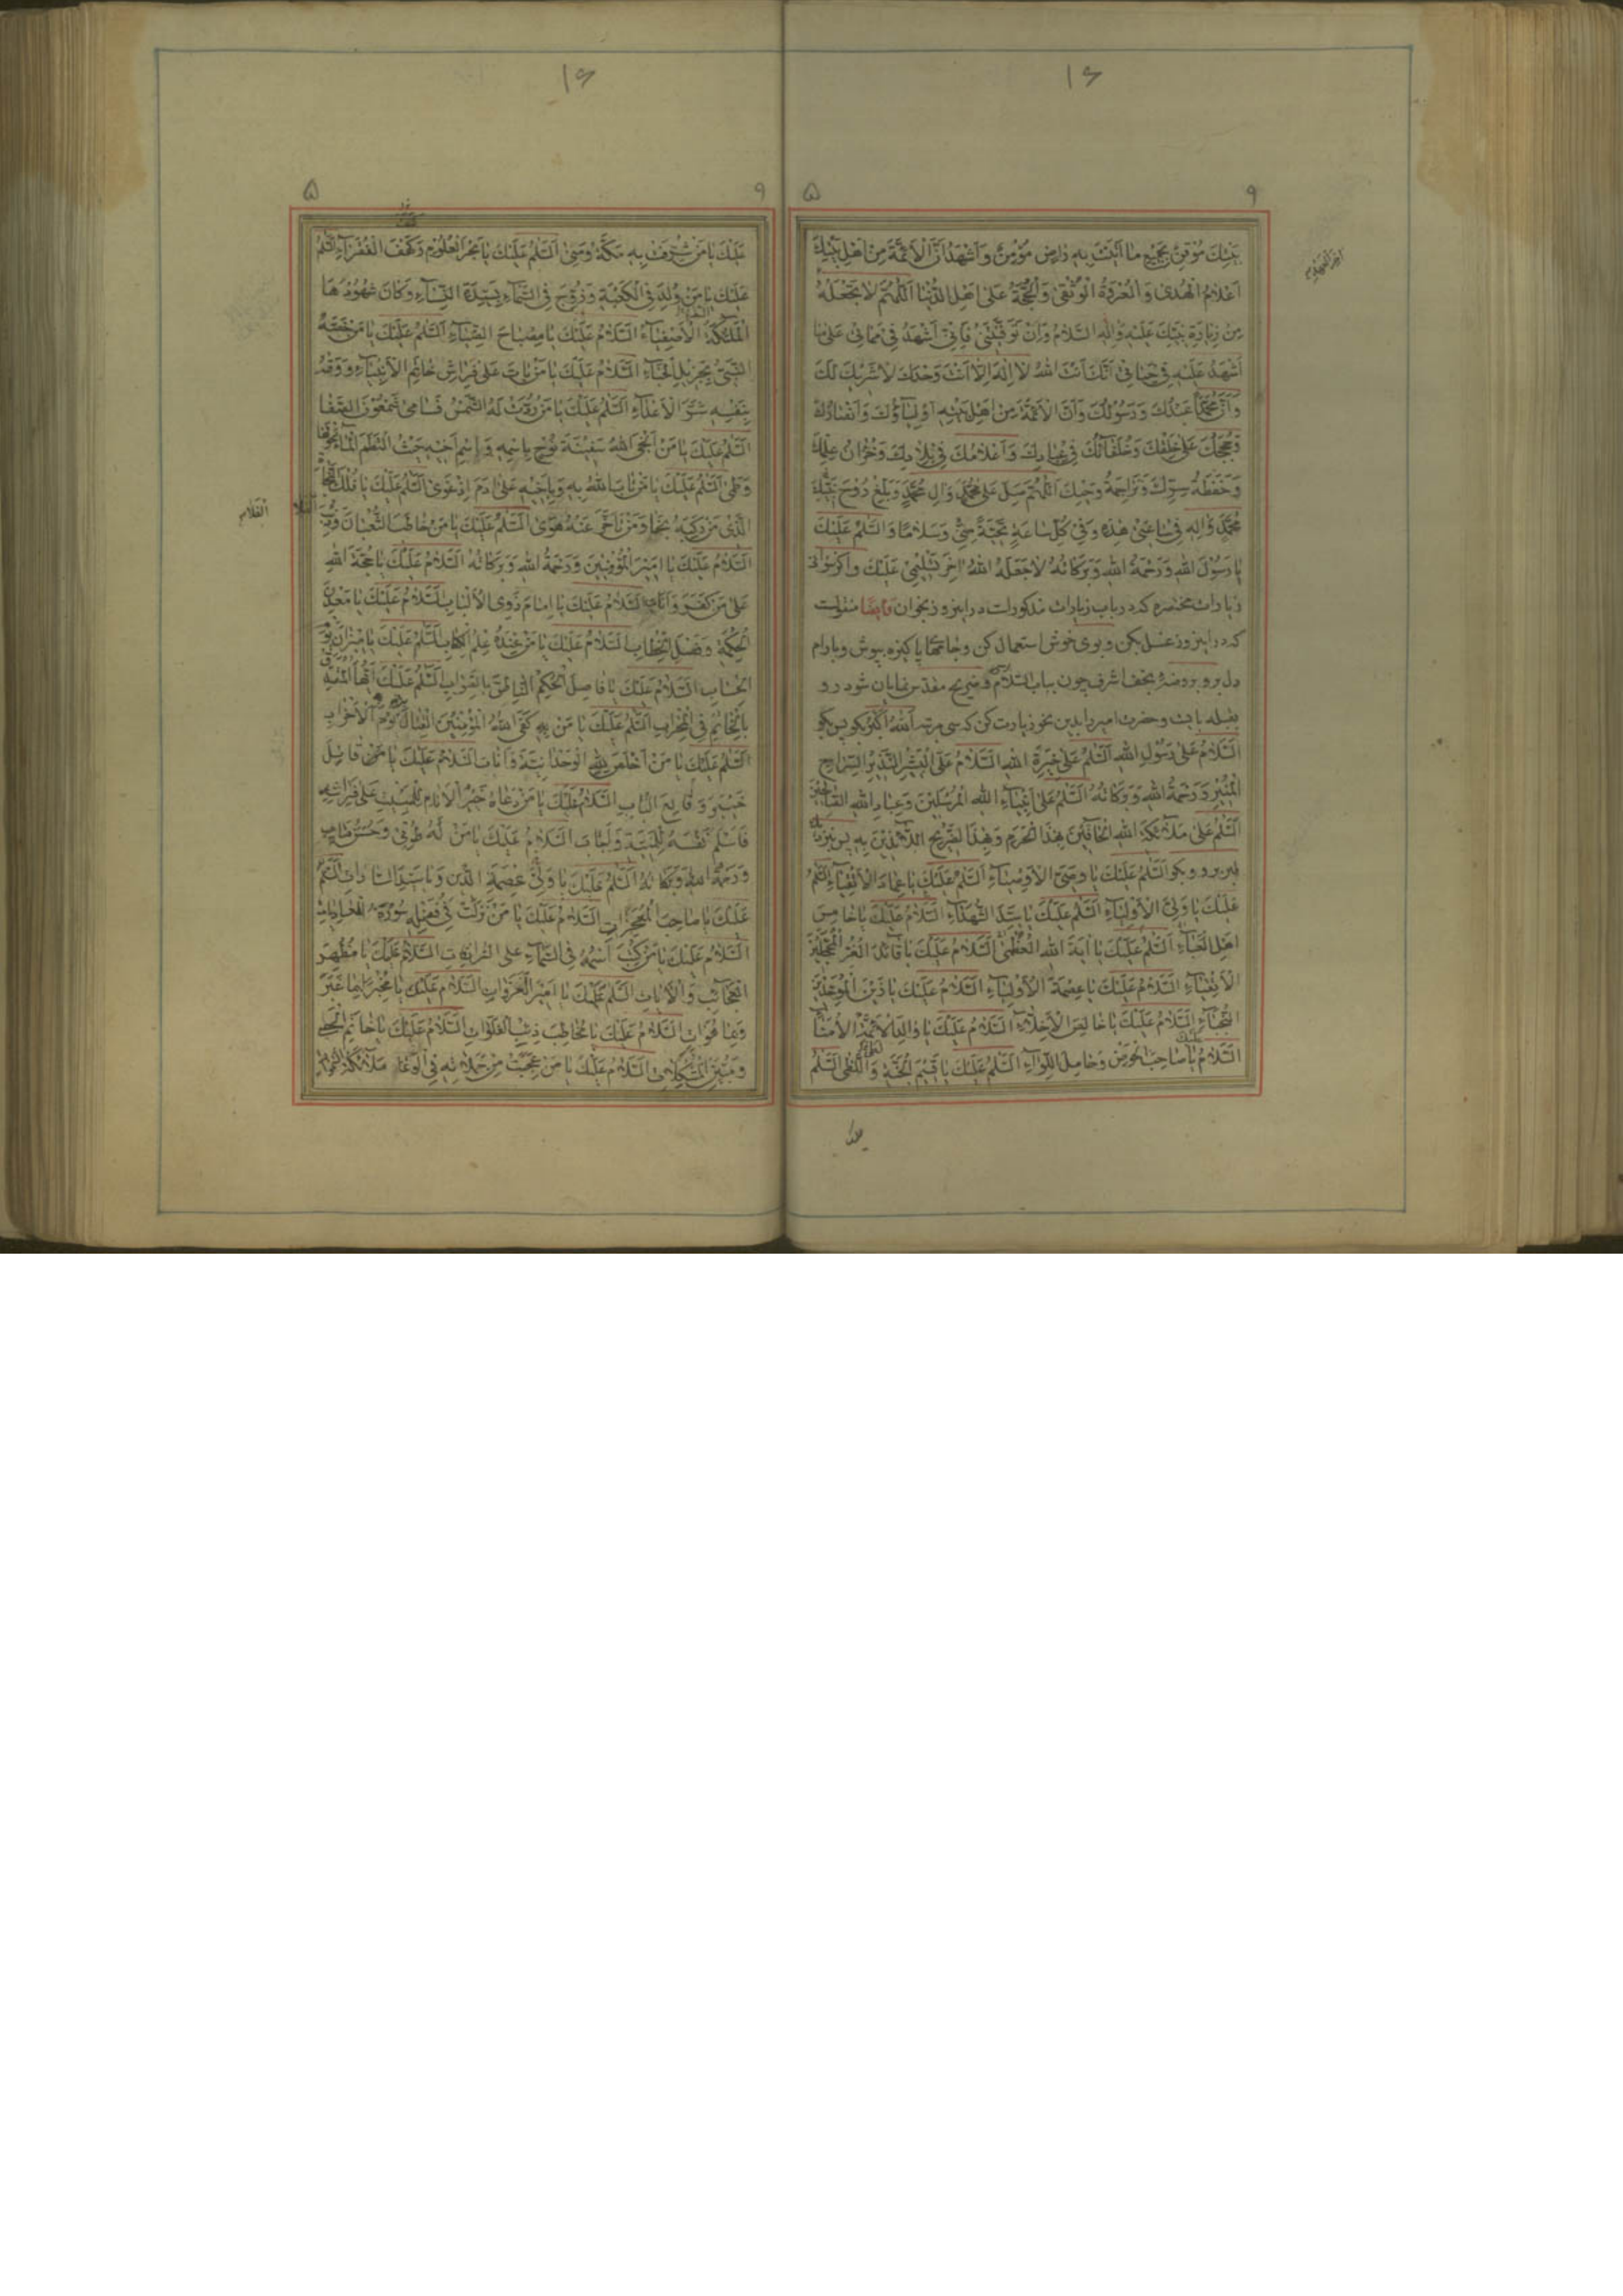 ۱۶
۹ ۵
بَيْتِكَ مُوقِنٌ بِجَمِيعِ مَا أَتَيْتَ بِهِ رَاضٍ مُؤْمِنٌ وَأَشْهَدُ أَنَّ الْأَئِمَّةَ مِنْ أَهْلِ بَيْتِكَ
أَعْلَامُ الْهُدَى وَالْعُرْوَةُ الْوُثْقَى وَالْحُجَّةُ عَلَى أَهْلِ الدُّنْيَا اَللّٰهُمَّ لَا تَجْعَلْهُ
مِنْ زِيَارَةِ نَبِيِّكَ عَلَيْهِ وَآلِهِ السَّلَامُ وَإِنْ تَوَفَّيْتَنِي فَإِنِّي أَشْهَدُ فِي مَمَاتِي عَلَى مَا
أَشْهَدُ عَلَيْهِ فِي حَيَاتِي أَنَّكَ أَنْتَ اللهُ لَا إِلٰهَ إِلَّا أَنْتَ وَحْدَكَ لَا شَرِيكَ لَكَ
وَأَنَّ مُحَمَّدًا عَبْدُكَ وَرَسُولُكَ وَأَنَّ الْأَئِمَّةَ مِنْ أَهْلِ بَيْتِهِ أَوْلِيَاؤُكَ وَأَنْصَارُكَ
وَحُجَجُكَ عَلَى خَلْقِكَ وَخُلَفَاؤُكَ فِي عِبَادِكَ وَأَعْلَامُكَ فِي بِلَادِكَ وَخُزَّانُ عِلْمِكَ
وَحَفَظَةُ سِرِّكَ وَتَرَاجِمَةُ وَحْيِكَ اَللّٰهُمَّ صَلِّ عَلَى مُحَمَّدٍ وَآلِ مُحَمَّدٍ وَبَلِّغْ رُوحَ نَبِيِّكَ
مُحَمَّدٍ وَآلِهِ فِي سَاعَتِي هٰذِهِ وَفِي كُلِّ سَاعَةٍ تَحِيَّةً مِنِّي وَسَلَامًا وَالسَّلَامُ عَلَيْكَ
يَا رَسُولَ اللهِ وَرَحْمَةُ اللهِ وَبَرَكَاتُهُ لَا جَعَلَهُ اللهُ آخِرَ تَسْلِيمِي عَلَيْكَ واکر بتوانی
زیارات مختصره که در باب زیارات مذکورات در این روز بخوان وایضا منقولست
که در این روز غسل بکن و بوی خوش استعمال کن و جامهای پاکیزه بپوش و با رام
دل برو بروضهٔ نجف اشرف چون بباب السلام و ضریح مقدس نمایان شود رو
بقبله بایست و حضرت امیر را بدین نحو زیارت کن که سی مرتبه اَللهُ أَكْبَرُ بکو پس بکو
اَلسَّلَامُ عَلَى رَسُولِ اللهِ اَلسَّلَامُ عَلَى خِيَرَةِ اللهِ اَلسَّلَامُ عَلَى الْبَشِيرِ النَّذِيرِ السِّرَاجِ
الْمُنِيرِ وَرَحْمَةُ اللهِ وَبَرَكَاتُهُ اَلسَّلَامُ عَلَى أَنْبِيَاءِ اللهِ الْمُرْسَلِينَ وَعِبَادِ اللهِ الصَّالِحِينَ
اَلسَّلَامُ عَلَى مَلَائِكَةِ اللهِ الْحَافِّينَ بِهٰذَا الْحَرَمِ وَبِهٰذَا الضَّرِيحِ اللَّائِذِينَ بِهِ پس بنزدیک
قبر برو و بکو اَلسَّلَامُ عَلَيْكَ يَا وَصِيَّ الْأَوْصِيَاءِ اَلسَّلَامُ عَلَيْكَ يَا عِمَادَ الْأَتْقِيَاءِ اَلسَّلَامُ
عَلَيْكَ يَا وَلِيَّ الْأَوْلِيَاءِ اَلسَّلَامُ عَلَيْكَ يَا سَيِّدَ الشُّهَدَاءِ اَلسَّلَامُ عَلَيْكَ يَا خَامِسَ
أَهْلِ الْعَبَاءِ اَلسَّلَامُ عَلَيْكَ يَا آيَةَ اللهِ الْعُظْمَى اَلسَّلَامُ عَلَيْكَ يَا قَائِدَ الْغُرِّ الْمُحَجَّلِينَ
الْأَتْقِيَاءِ اَلسَّلَامُ عَلَيْكَ يَا عِصْمَةَ الْأَوْلِيَاءِ اَلسَّلَامُ عَلَيْكَ يَا زَيْنَ الْمُوَحِّدِينَ
النُّجَبَاءِ اَلسَّلَامُ عَلَيْكَ يَا خَالِصَ الْأَخِلَّاءِ اَلسَّلَامُ عَلَيْكَ يَا وَالِدَ الْأَئِمَّةِ الْأُمَنَاءِ
اَلسَّلَامُ عَلَيْكَ يَا صَاحِبَ الْحَوْضِ وَحَامِلَ اللِّوَاءِ اَلسَّلَامُ عَلَيْكَ يَا قَسِيمَ الْجَنَّةِ وَاللَّظَى اَلسَّلَامُ
۱۶
۹ ۵
عَلَيْكَ يَا مَنْ شُرِّفَتْ بِهِ مَكَّةُ وَمِنَى اَلسَّلَامُ عَلَيْكَ يَا بَحْرَ الْعُلُومِ وَكَهْفَ الْفُقَرَاءِ اَلسَّلَامُ
عَلَيْكَ يَا مَنْ وُلِدَ فِي الْكَعْبَةِ وَزُوِّجَ فِي السَّمَاءِ بِسَيِّدَةِ النِّسَاءِ وَكَانَ شُهُودُهَا
الْمَلَائِكَةَ الْأَصْفِيَاءَ اَلسَّلَامُ عَلَيْكَ يَا مِصْبَاحَ الضِّيَاءِ اَلسَّلَامُ عَلَيْكَ يَا مَنْ خَصَّهُ
النَّبِيُّ بِجَزِيلِ الْحِبَاءِ اَلسَّلَامُ عَلَيْكَ يَا مَنْ بَاتَ عَلَى فِرَاشِ خَاتِمِ الْأَنْبِيَاءِ وَوَقَاهُ
بِنَفْسِهِ شَرَّ الْأَعْدَاءِ اَلسَّلَامُ عَلَيْكَ يَا مَنْ رُدَّتْ لَهُ الشَّمْسُ فَسَامَى شَمْعُونَ الصَّفَا
اَلسَّلَامُ عَلَيْكَ يَا مَنْ أَنْجَى اللهُ سَفِينَةَ نُوحٍ بِاسْمِهِ وَاسْمِ أَخِيهِ حَيْثُ الْتَطَمَ الْمَاءُ حَوْلَهَا
وَطَمَى اَلسَّلَامُ عَلَيْكَ يَا مَنْ تَابَ اللهُ بِهِ وَبِأَخِيهِ عَلَى آدَمَ إِذْ غَوَى اَلسَّلَامُ عَلَيْكَ يَا فُلْكَ النَّجَاةِ
الَّذِي مَنْ رَكِبَهُ نَجَا وَمَنْ تَأَخَّرَ عَنْهُ هَوَى اَلسَّلَامُ عَلَيْكَ يَا مَنْ خَاطَبَ الثُّعْبَانَ
اَلسَّلَامُ عَلَيْكَ يَا أَمِيرَ الْمُؤْمِنِينَ وَرَحْمَةُ اللهِ وَبَرَكَاتُهُ اَلسَّلَامُ عَلَيْكَ يَا حُجَّةَ اللهِ
عَلَى مَنْ كَفَرَ وَأَنَابَ اَلسَّلَامُ عَلَيْكَ يَا إِمَامَ ذَوِي الْأَلْبَابِ اَلسَّلَامُ عَلَيْكَ يَا مَعْدِنَ
الْحِكْمَةِ وَفَصْلَ الْخِطَابِ اَلسَّلَامُ عَلَيْكَ يَا مَنْ عِنْدَهُ عِلْمُ الْكِتَابِ اَلسَّلَامُ عَلَيْكَ يَا مِيزَانَ يَوْمِ
الْحِسَابِ اَلسَّلَامُ عَلَيْكَ يَا فَاصِلَ الْحُكْمِ النَّاطِقَ بِالصَّوَابِ اَلسَّلَامُ عَلَيْكَ أَيُّهَا الْمُتَصَدِّقُ
بِالْخَاتَمِ فِي الْمِحْرَابِ اَلسَّلَامُ عَلَيْكَ يَا مَنْ بِهِ كَفَى اللهُ الْمُؤْمِنِينَ الْقِتَالَ يَوْمَ الْأَحْزَابِ
اَلسَّلَامُ عَلَيْكَ يَا مَنْ أَخْلَصَ لِلّٰهِ الْوَحْدَانِيَّةَ وَأَنَابَ اَلسَّلَامُ عَلَيْكَ يَا قَاتِلَ
خَيْبَرَ وَقَالِعَ الْبَابِ اَلسَّلَامُ عَلَيْكَ يَا مَنْ دَعَاهُ خَيْرُ الْأَنَامِ لِلْمَبِيتِ عَلَى فِرَاشِهِ
فَأَسْلَمَ نَفْسَهُ لِلْمَنِيَّةِ وَأَجَابَ اَلسَّلَامُ عَلَيْكَ يَا مَنْ لَهُ طُوبَى وَحُسْنُ مَآبٍ
وَرَحْمَةُ اللهِ وَبَرَكَاتُهُ اَلسَّلَامُ عَلَيْكَ يَا وَلِيَّ عِصْمَةِ الدِّينِ وَيَا سَيِّدَ السَّادَاتِ اَلسَّلَامُ
عَلَيْكَ يَا صَاحِبَ الْمُعْجِزَاتِ اَلسَّلَامُ عَلَيْكَ يَا مَنْ نَزَلَتْ فِي فَضْلِهِ سُورَةُ الْعَادِيَاتِ
اَلسَّلَامُ عَلَيْكَ يَا مَنْ كُتِبَ اسْمُهُ فِي السَّمَاءِ عَلَى السُّرَادِقَاتِ اَلسَّلَامُ عَلَيْكَ يَا مُظْهِرَ
الْعَجَائِبِ وَالْآيَاتِ اَلسَّلَامُ عَلَيْكَ يَا أَمِيرَ الْغَزَوَاتِ اَلسَّلَامُ عَلَيْكَ يَا مُخْبِرًا بِمَا غَبَرَ
وَبِمَا هُوَ آتٍ اَلسَّلَامُ عَلَيْكَ يَا مُخَاطِبَ ذِئْبِ الْفَلَوَاتِ اَلسَّلَامُ عَلَيْكَ يَا خَاتِمَ الْحَصَى
وَمُبَيِّنَ الْمُشْكِلَاتِ اَلسَّلَامُ عَلَيْكَ يَا مَنْ عَجِبَتْ مِنْ حَمَلَاتِهِ فِي الْوَغَا مَلَائِكَةُ السَّمٰوَاتِ